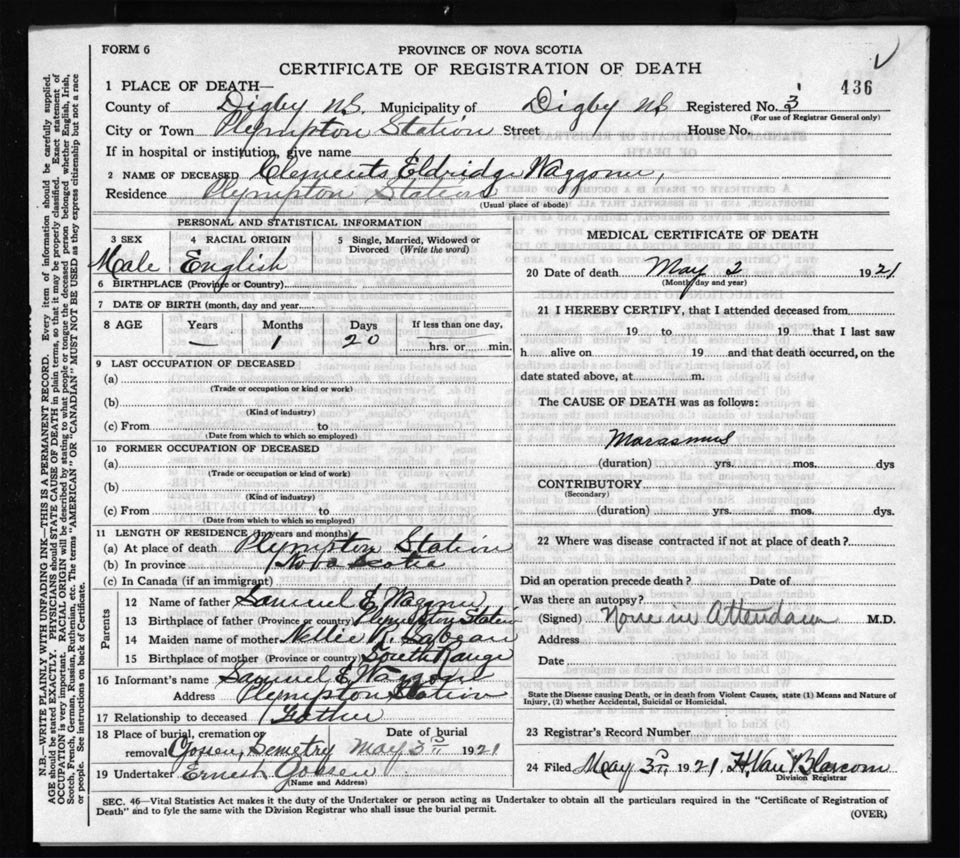 FORM 6
PROVINCE OF NOVA SCOTIA
CERTIFICATE OF REGISTRATION OF DEATH
436
1 PLACE OF DEATH—
County of Digby N.S. Municipality of Digby N.S. Registered No. 3
(For use of Registrar General only)
City or Town Plympton Station Street House No.
If in hospital or institution, give name
2 NAME OF DECEASED Clements Eldridge
Residence Plympton Station
(Usual place of abode)
PERSONAL AND STATISTICAL INFORMATION
3 SEX 4 RACIAL ORIGIN 5 Single, Married, Widowed or Divorced (Write the word)
Male English
6 BIRTHPLACE (Province or Country)
7 DATE OF BIRTH (month, day and year)
8 AGE Years Months Days If less than one day,
— 1 20 hrs. or min.
9 LAST OCCUPATION OF DECEASED
(a)
(Trade or occupation or kind or work)
(b)
(Kind of industry)
(c) From to
(Date from which to which so employed)
10 FORMER OCCUPATION OF DECEASED
(a)
(Trade or occupation or kind or work)
(b)
(Kind of industry)
(c) From to
(Date from which to which so employed)
11 LENGTH OF RESIDENCE (In years and months)
(a) At place of death Plympton Station
(b) In province Nova Scotia
(c) In Canada (if an immigrant)
Parents
12 Name of father Samuel E.
13 Birthplace of father (Province or country) Plympton Station
14 Maiden name of mother Nellie R. Sabean
15 Birthplace of mother (Province or country) South Range
16 Informant's name Samuel E.
Address Plympton Station
17 Relationship to deceased Father
18 Place of burial, cremation or removal Date of burial
May 3 1921
19 Undertaker Ernest
(Name and Address)
MEDICAL CERTIFICATE OF DEATH
20 Date of death May 2 1921
(Month, day and year)
21 I HEREBY CERTIFY, that I attended deceased from
19 to 19 that I last saw
h alive on 19 and that death occurred, on the
date stated above, at m.
The CAUSE OF DEATH was as follows:
Marasmus
(duration) yrs. mos. dys
CONTRIBUTORY
(Secondary)
(duration) yrs. mos. dys.
22 Where was disease contracted if not at place of death?
Did an operation precede death? Date of
Was there an autopsy?
(Signed) None in M.D.
Address
Date
State the Disease causing Death, or in death from Violent Causes, state (1) Means and Nature of
Injury, (2) whether Accidental, Suicidal or Homicidal.
23 Registrar's Record Number
24 Filed May 3 1921. H. Van Blarcom
Division Registrar
SEC. 46—Vital Statistics Act makes it the duty of the Undertaker or person acting as Undertaker to obtain all the particulars required in the "Certificate of Registration of
Death" and to fyle the same with the Division Registrar who shall issue the burial permit.
(OVER)
N.B.—WRITE PLAINLY WITH UNFADING INK—THIS IS A PERMANENT RECORD. Every item of information should be carefully supplied.
AGE should be stated EXACTLY. PHYSICIANS should STATE CAUSE OF DEATH in plain terms, so that it may be properly classified. Exact statement of
OCCUPATION is very important. RACIAL ORIGIN will be described by stating to what people or tongue the deceased person belonged whether English, Irish,
Scotch, French, German, Russian, Ruthenian, etc. The terms "AMERICAN" OR "CANADIAN" MUST NOT BE USED as they express citizenship but not a race
or people. See instructions on back of Certificate.